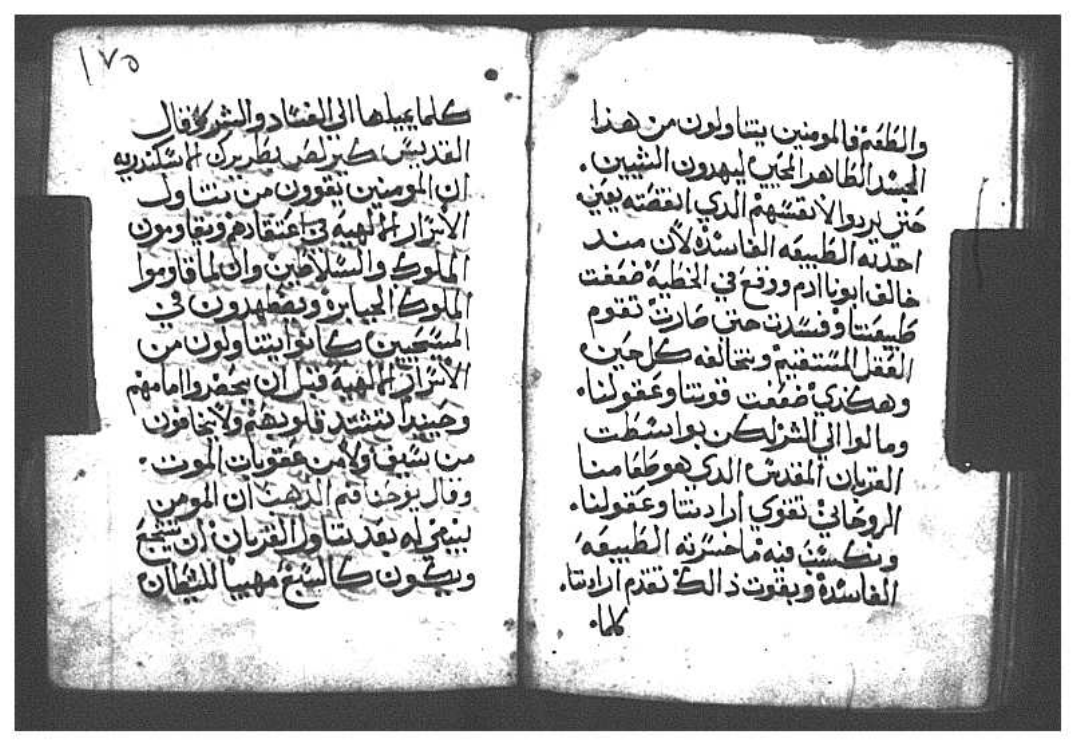 والطغمة فالمومنين يتناولون من هذا
الجسد الطاهر المحيي ليبهرون الشيين.
حتى يردوا لانفسهم الذي انقصته يعين
احدته الطبيعه الفاسدة لأن مند
خالف ابونا ادم ووقع في الخطية ضعفت
طبيعتنا وفسدت حتى صارت تقوم
العقل المستقيم وبتخالفه كل حين
وهكدي ضعفت قوتنا وعقولنا.
ومالوا الي الشر لكن بواسطت
القربان المقدس الدي هو طعامنا
الروحاني تقوي ارادتنا وعقولنا.
ويكسب فيه ما خسرته الطبيعه
الفاسدة وبقوت ذالك تقدم ارادتنا.
كلما.
١٧٥
كلما يميلها الي الفساد والشر وقال
القديس كيرلص بطريرك الاسكندريه
ان المومنين يقوون من تناول
الأسرار الالهية في اعتقادهم ويقاومون
الملوك والسلاطين وان لما قاوموا
الملوك الجبابرة ويضطهدون في
المسيحيين كانوا يتناولون من
الأسرار الالهية قبل ان يحضروا امامهم
وحينيدا تتشدد قلوبهم ولا يخافون
من سيف ولا من عقوبات الموت.
وقال يوحنا فم الدهب ان المومن
ينبغي له بعد تناول القربان ان يتشجع
ويكون كالسبع مهيبا للشيطان